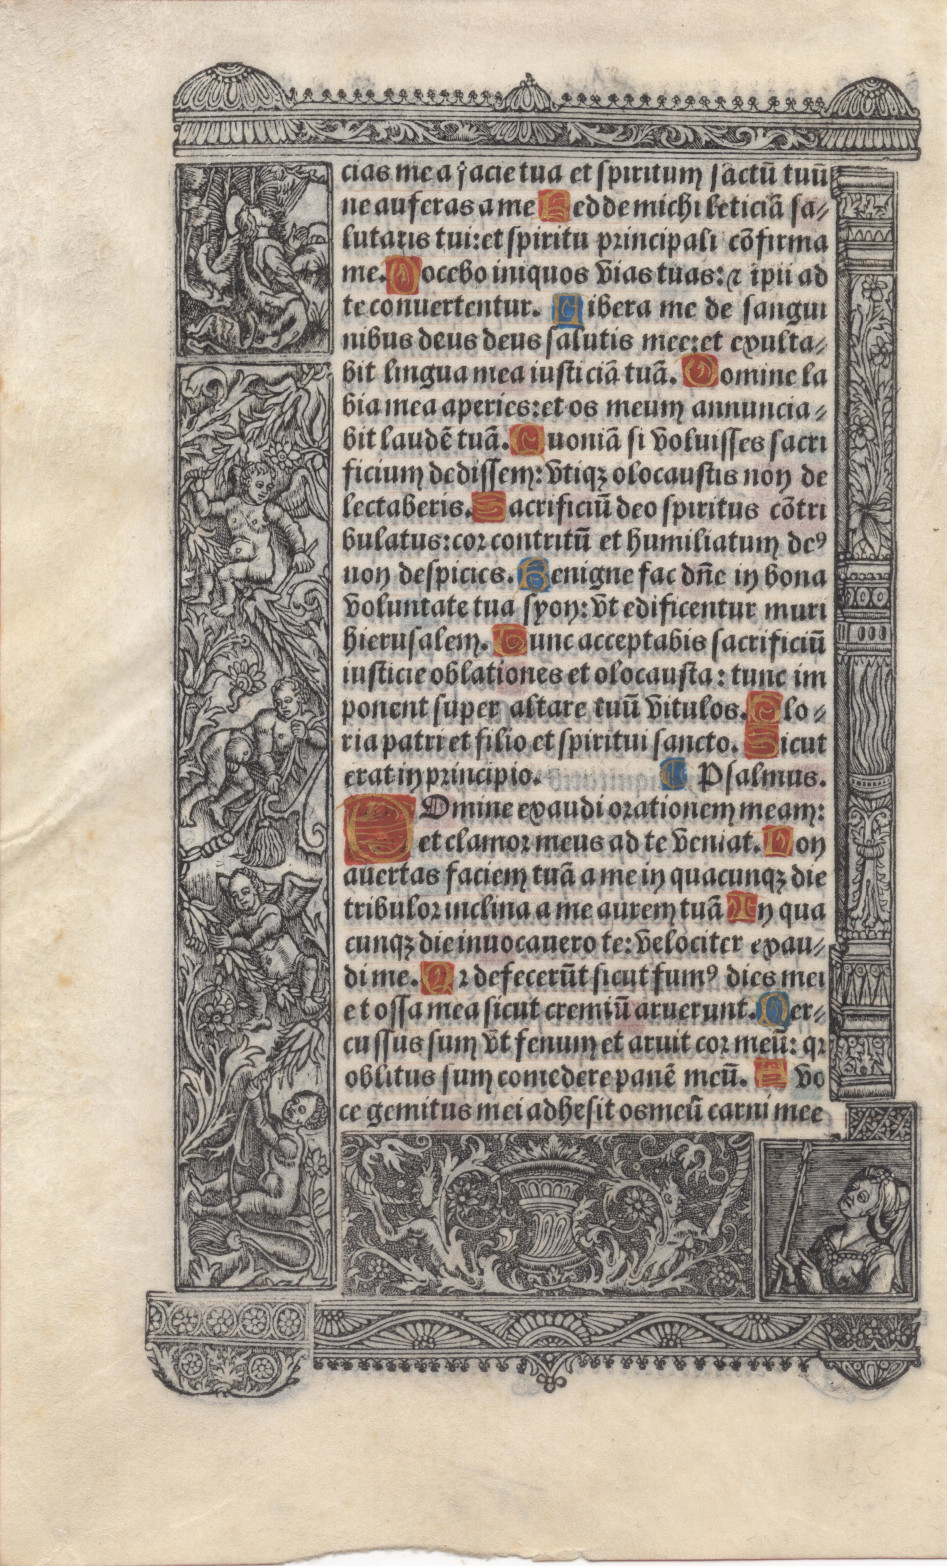 cias me a ꝑacie tua et spiritum sāctū tuū
ne auferas a me Redde michi leticiā sa⸗
lutaris tui: et spiritu principali cōfirma
me. Docebo iniquos vias tuas: ⁊ ipii ad
te conuertentur. Libera me de sangui
nibus deus deus salutis mee: et exulta⸗
bit lingua mea iusticiā tuā. Domine la
bia mea aperies: et os meum annuncia⸗
bit laudē tuā. Quoniā si voluisses sacri
ficium dedissem: vtiqꝫ olocaustis non de
lectaberis. Sacrificiū deo spiritus cōtri
bulatus: cor contritū et humiliatum deꝰ
non despicies. Benigne fac dn̄e in bona
voluntate tua syon: vt edificentur muri
hierusalem. Tunc acceptabis sacrificiū
iusticie oblationes et olocausta: tunc im
ponent super altare tuū vitulos. Glo⸗
ria patri et filio et spiritui sancto. Sicut
erat in principio. Psalmus.
Domine exaudi orationem meam:
et clamor meus ad te veniat. Non
auertas faciem tuā a me in quacunqꝫ die
tribulor inclina a me aurem tuā In qua
cunqꝫ die inuocauero te: velociter exau⸗
di me. Qꝛ defecerūt sicut fumꝰ dies mei
et ossa mea sicut cremiū aruerunt. Per⸗
cussus sum vt fenum et aruit cor meū: qꝛ
oblitus sum comedere panē meū. A vo
ce gemitus mei adhesit os meū carni mee